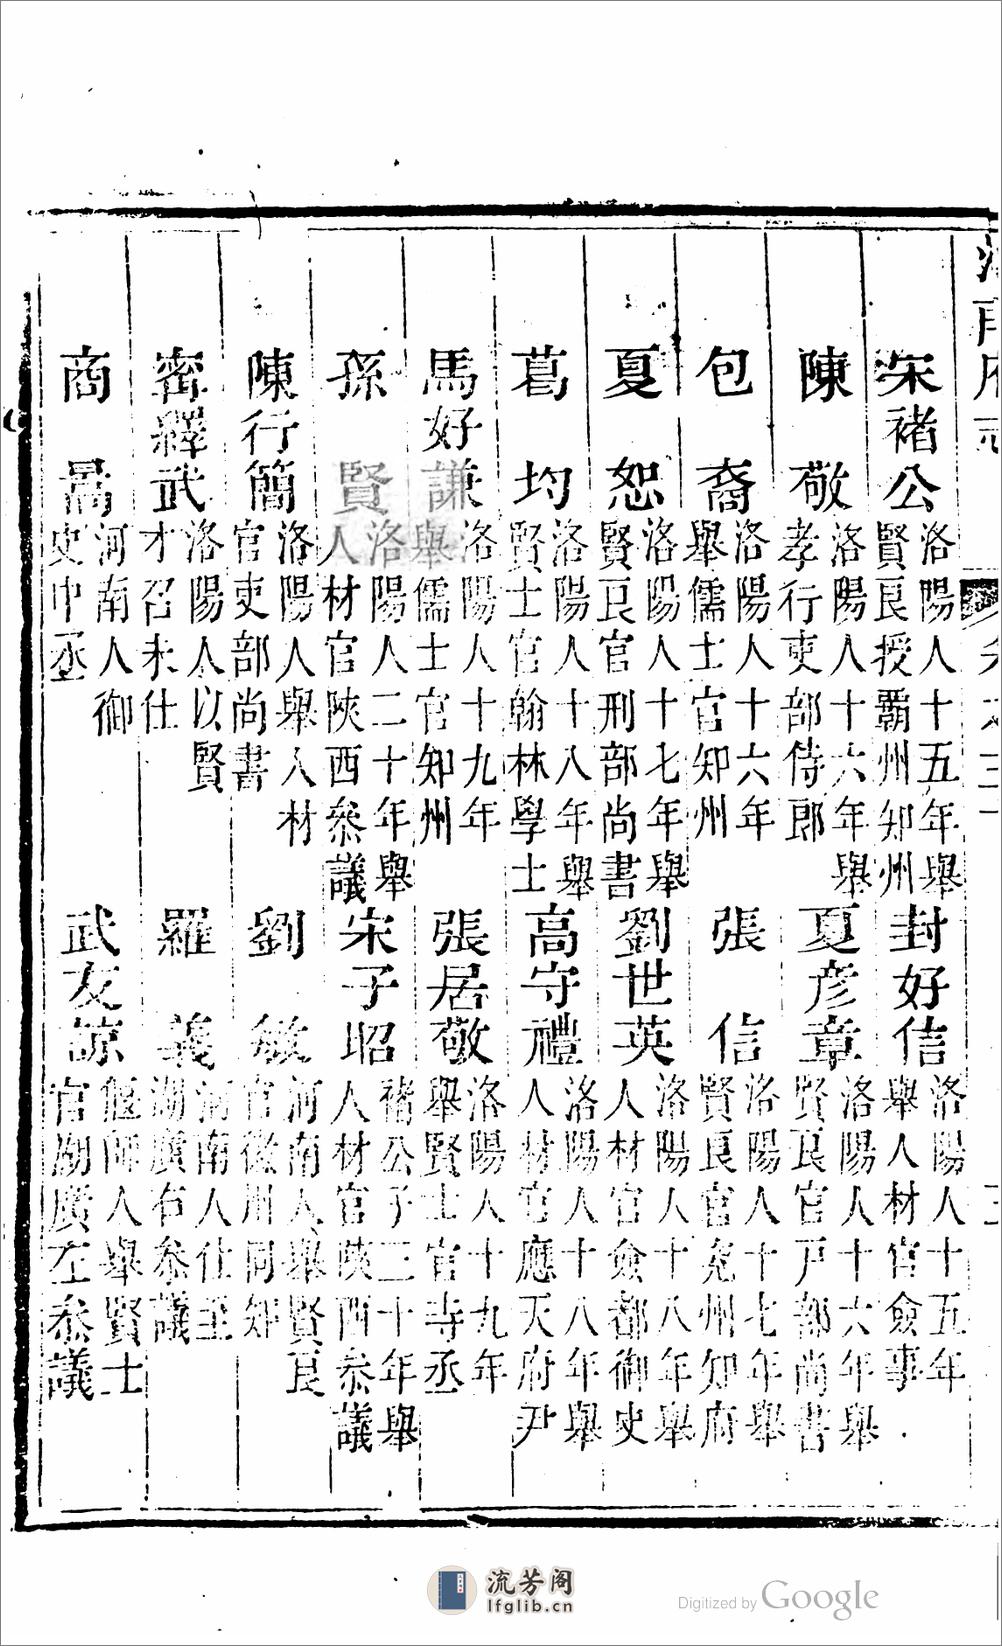 河南府志
宋褚公 洛陽人十五年舉賢良授霸州知州
封好信 洛陽人十五年舉人材官僉事
陳敬 洛陽人十六年舉孝行吏部侍郎
夏彦章 洛陽人十六年舉賢良官戸部尚書
包裔 洛陽人十六年舉儒士官知州
張信 洛陽人十七年舉賢良官兖州知府
夏恕 洛陽人十七年舉賢良官刑部尚書
劉世英 洛陽人十八年舉人材官僉都御史
葛均 洛陽人十八年舉賢士官翰林學士
高守禮 洛陽人十八年舉人材官應天府尹
馬好謙 洛陽人十九年舉儒士官知州
張居敬 洛陽人十九年舉賢士官寺丞
孫賢 洛陽人二十年舉人材官陝西叅議
宋子昭 褚公子三十年舉人材官陝西叅議
陳行簡 洛陽人舉人材官吏部尚書
劉敏 河南人舉賢良官徽州同知
密繹武 洛陽人以賢才召未仕
羅義 河南人仕至湖廣右叅議
商暠 河南人御史中丞
武友諒 偃師人舉賢士官湖廣左叅議
流芳阁
lfglib.cn
Digitized by Google